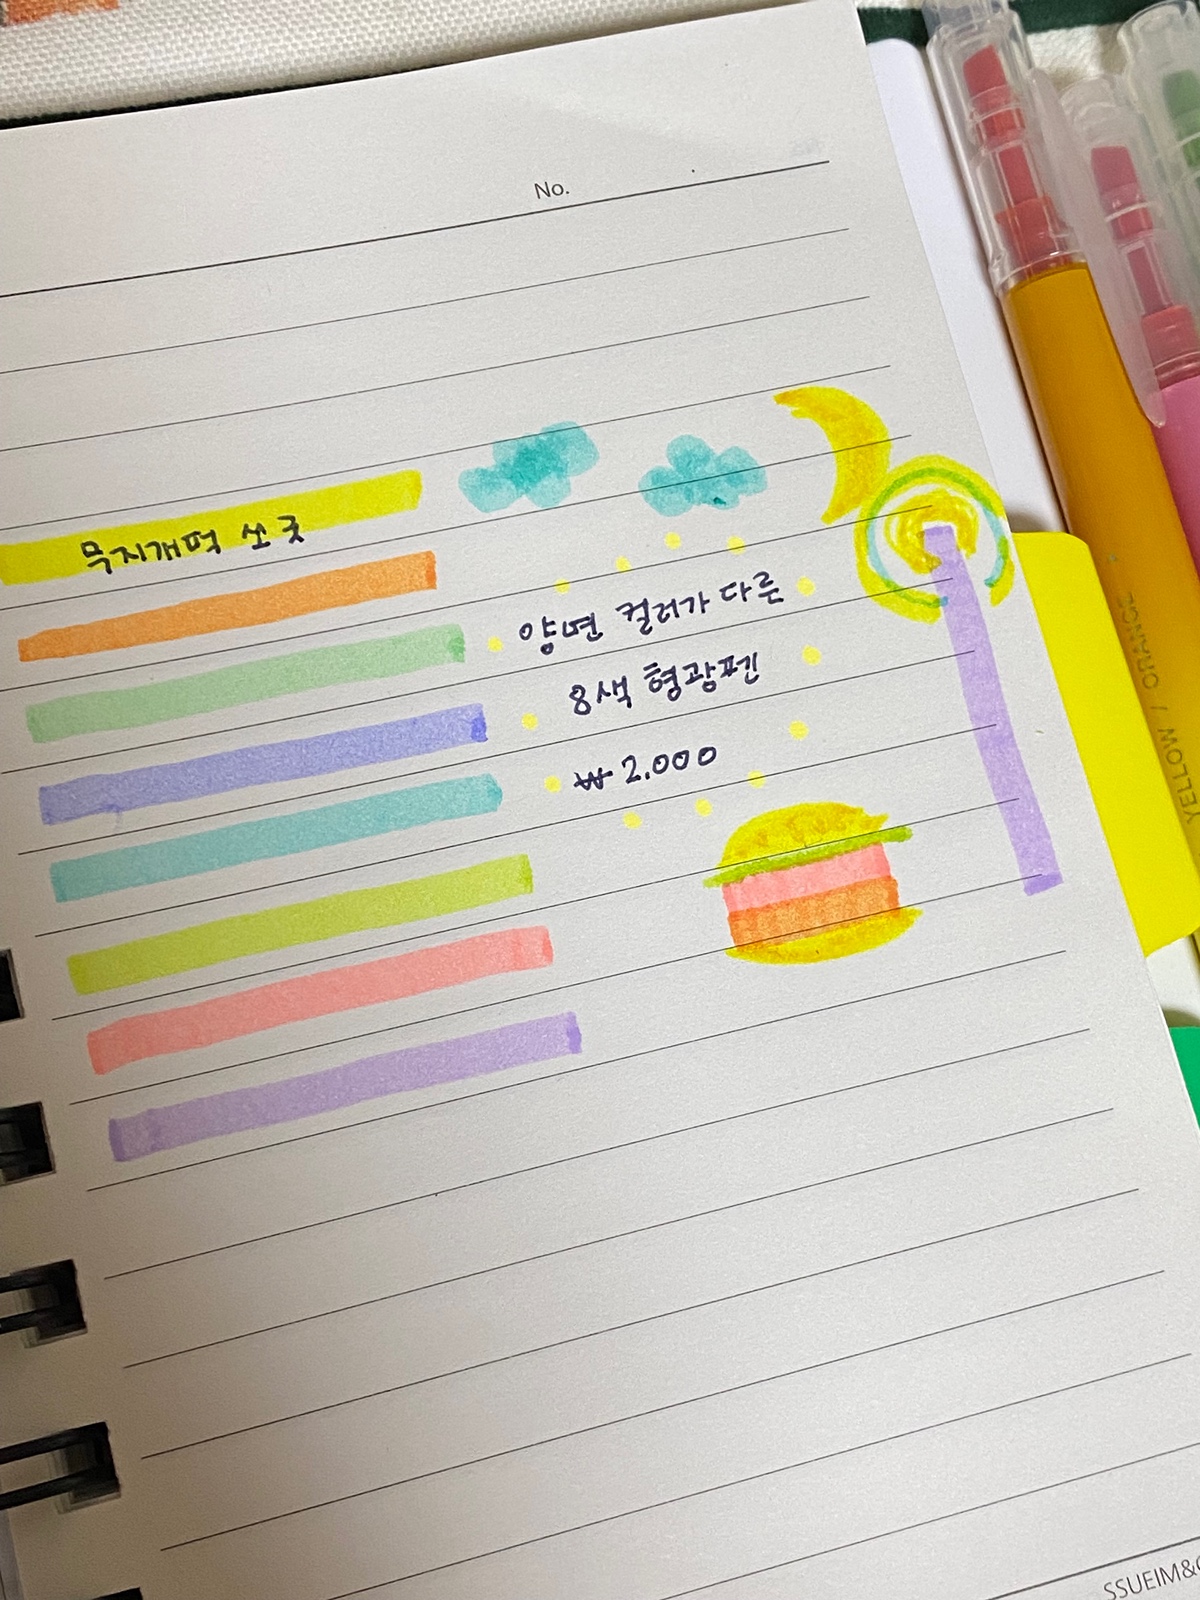 No.
무지개떡 쏘굿
양면 컬러가 다른
8색 형광펜
₩ 2.000
YELLOW / ORANGE
SSUEIM&C